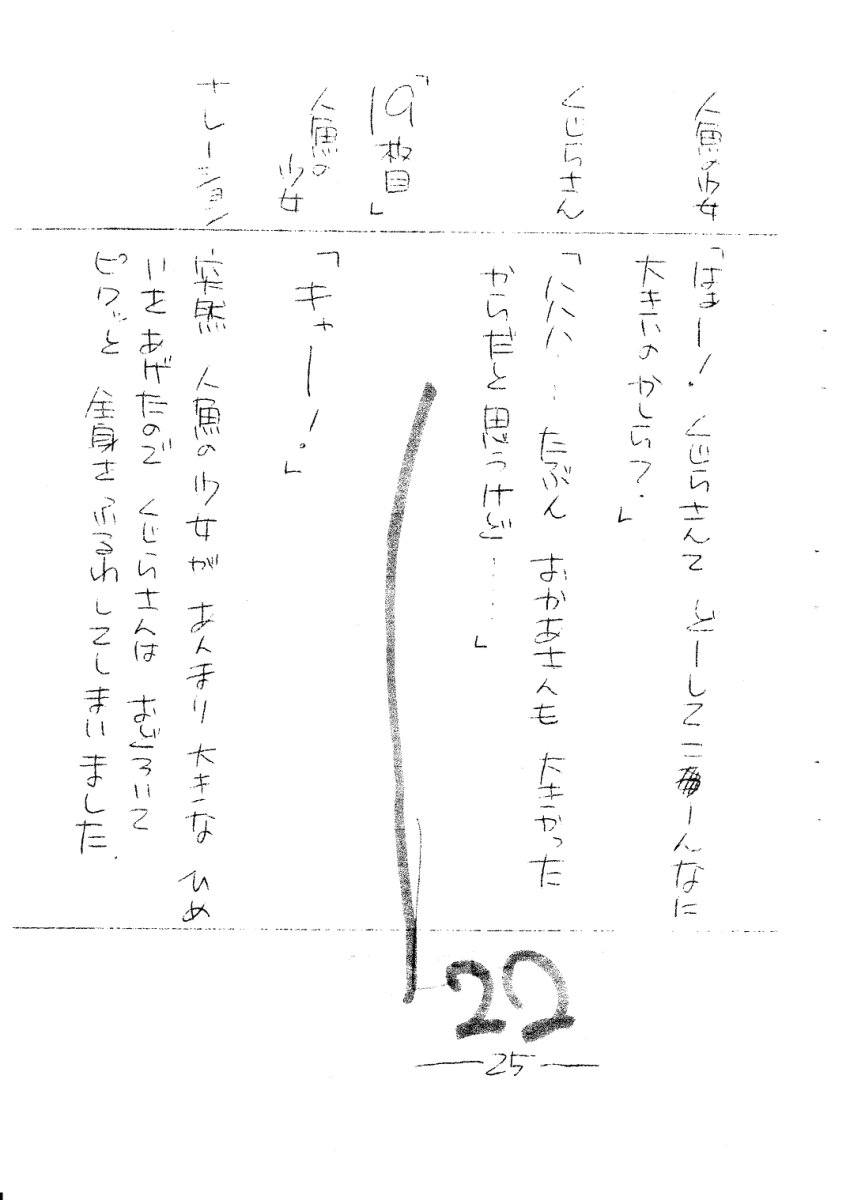 人魚の少女
「ほー！ くじらさんて どーしてこーんなに
大きいのかしら？」
くじらさん
「ハハハ… たぶん おかあさんも 大きかった
からだと思うけど……」
「19枚目」
人魚の
少女
「キャー！」
ナレーション
突然 人魚の少女が あんまり 大きな ひめ
いをあげたので くじらさんは おどろいて
ピクッと 全身を ふるわしてしまいました.
22
25